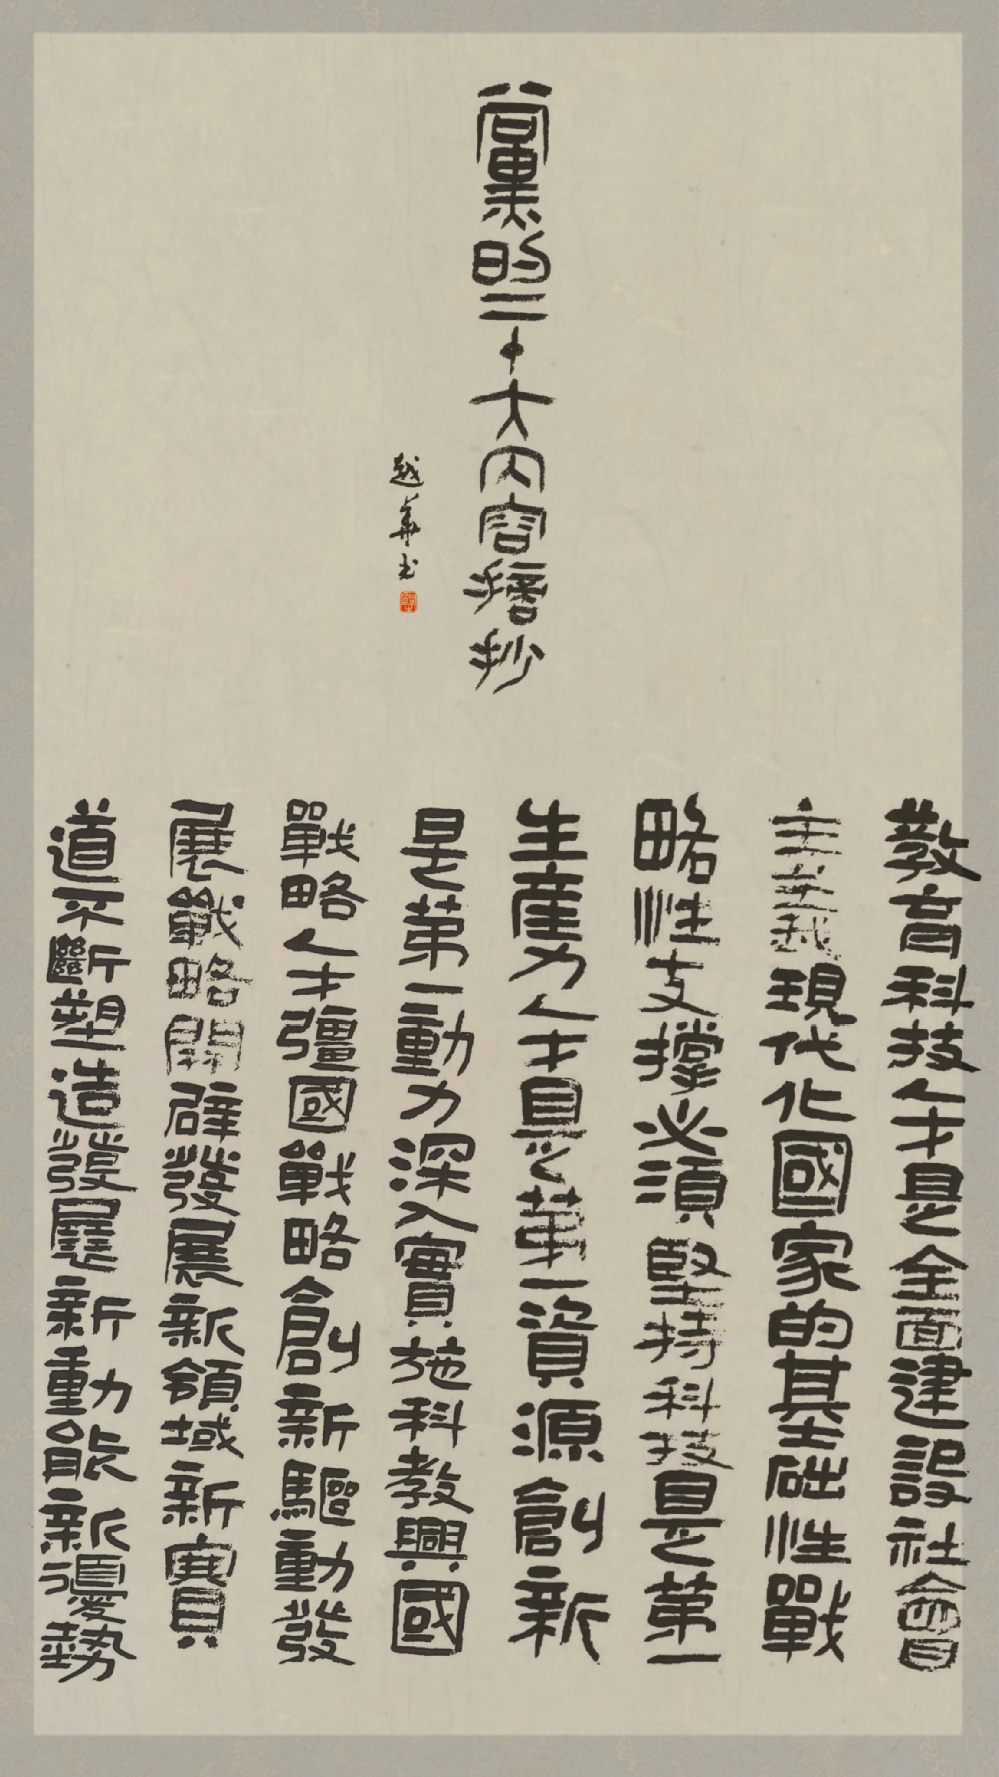 黨的二十大內容摘抄
越華书
教育科技人才是全面建設社會
主義現代化國家的基础性戰
略性支撐必須堅持科技是第一
生產力人才是第一資源創新
是第一動力深入實施科教興國
戰略人才彊國戰略創新驅動發
展戰略開辟發展新領域新賽
道不斷塑造發展新動能新優勢